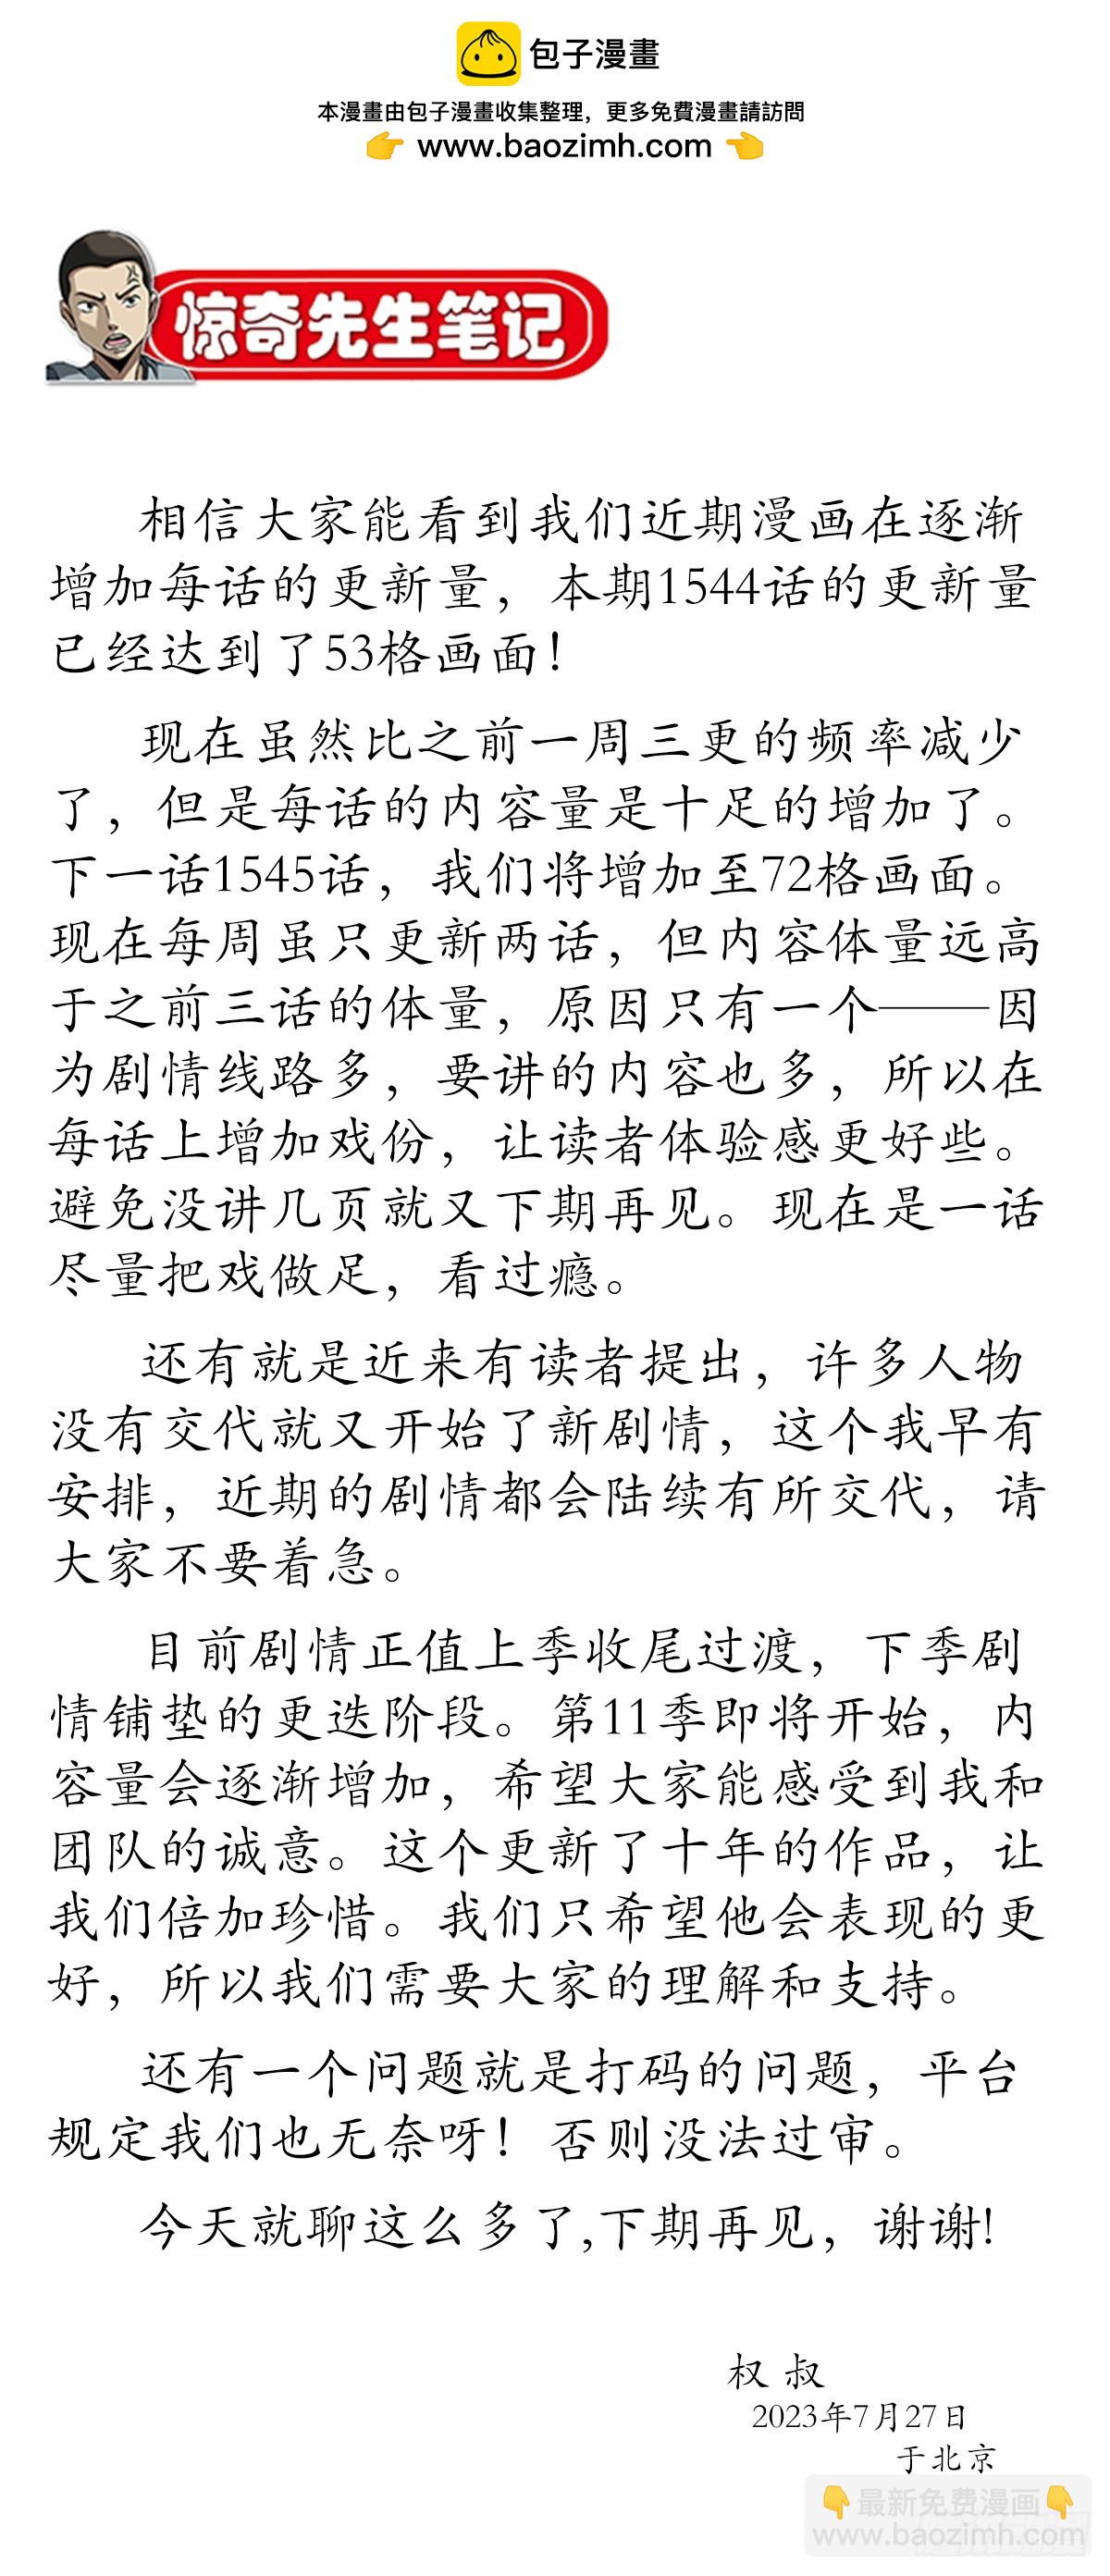 包子漫畫
本漫畫由包子漫畫收集整理，更多免費漫畫請訪問
👉 www.baozimh.com 👈
惊奇先生笔记
相信大家能看到我们近期漫画在逐渐
增加每话的更新量，本期1544话的更新量
已经达到了53格画面！
现在虽然比之前一周三更的频率减少
了，但是每话的内容量是十足的增加了。
下一话1545话，我们将增加至72格画面。
现在每周虽只更新两话，但内容体量远高
于之前三话的体量，原因只有一个——因
为剧情线路多，要讲的内容也多，所以在
每话上增加戏份，让读者体验感更好些。
避免没讲几页就又下期再见。现在是一话
尽量把戏做足，看过瘾。
还有就是近来有读者提出，许多人物
没有交代就又开始了新剧情，这个我早有
安排，近期的剧情都会陆续有所交代，请
大家不要着急。
目前剧情正值上季收尾过渡，下季剧
情铺垫的更迭阶段。第11季即将开始，内
容量会逐渐增加，希望大家能感受到我和
团队的诚意。这个更新了十年的作品，让
我们倍加珍惜。我们只希望他会表现的更
好，所以我们需要大家的理解和支持。
还有一个问题就是打码的问题，平台
规定我们也无奈呀！否则没法过审。
今天就聊这么多了,下期再见，谢谢!
权 叔
2023年7月27日
于北京
👇最新免费漫画👇
www.baozimh.com